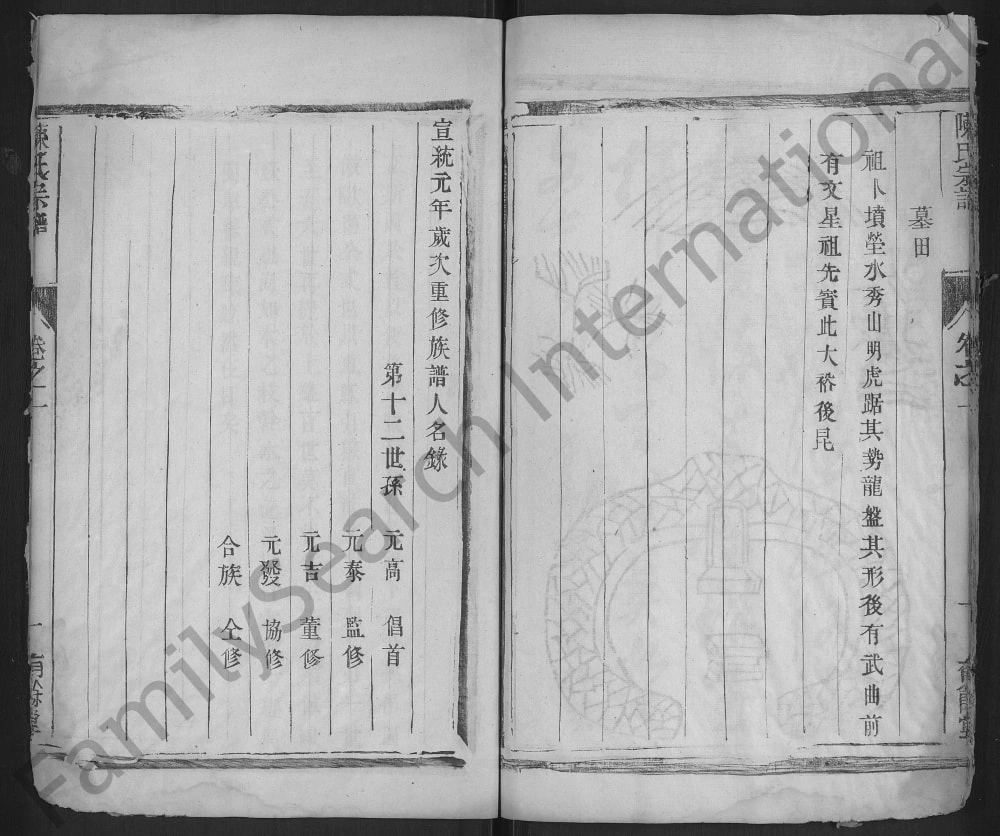 陳氏宗譜
卷之一
一
有餘堂
墓田
祖卜墳塋水秀山明虎踞其勢龍盤其形後有武曲前
有文星祖先賓此大裕後昆
宣統元年歲次重修族譜人名錄
第十二世孫 元高 倡首
元泰 監修
元吉 董修
元發 協修
合族 仝修
陳氏宗譜
卷之一
一
有餘堂
FamilySearch International